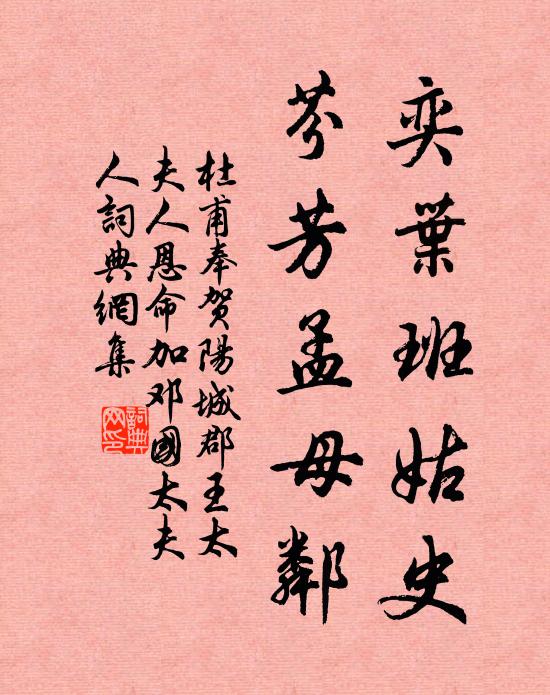 奕葉班姑史
芬芳孟母鄰
杜甫奉贺陽城郡王太
夫人恩命加邓國太夫
人詞典網集
詞典
网印